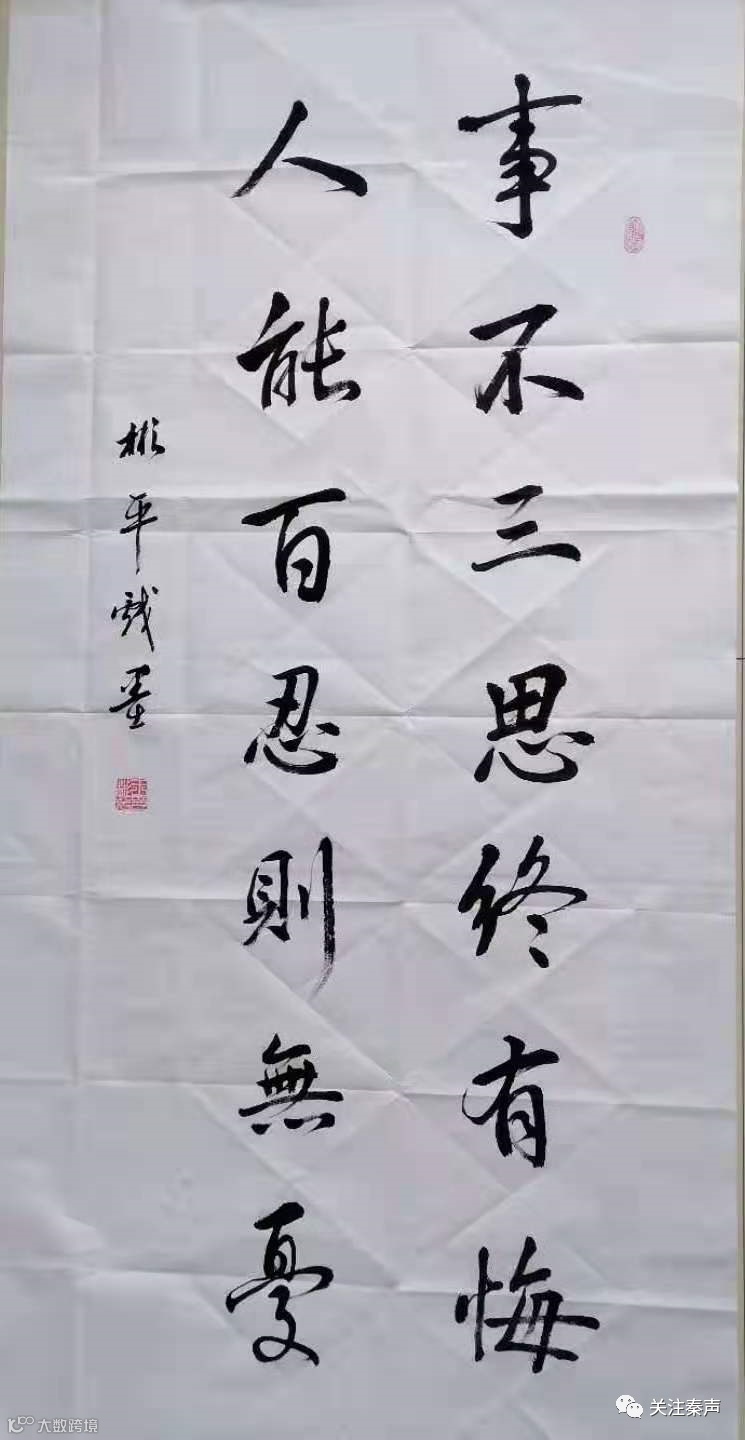 事不三思终有悔
人能百忍則無憂
彬平戏墨
关注秦声
大数跨境